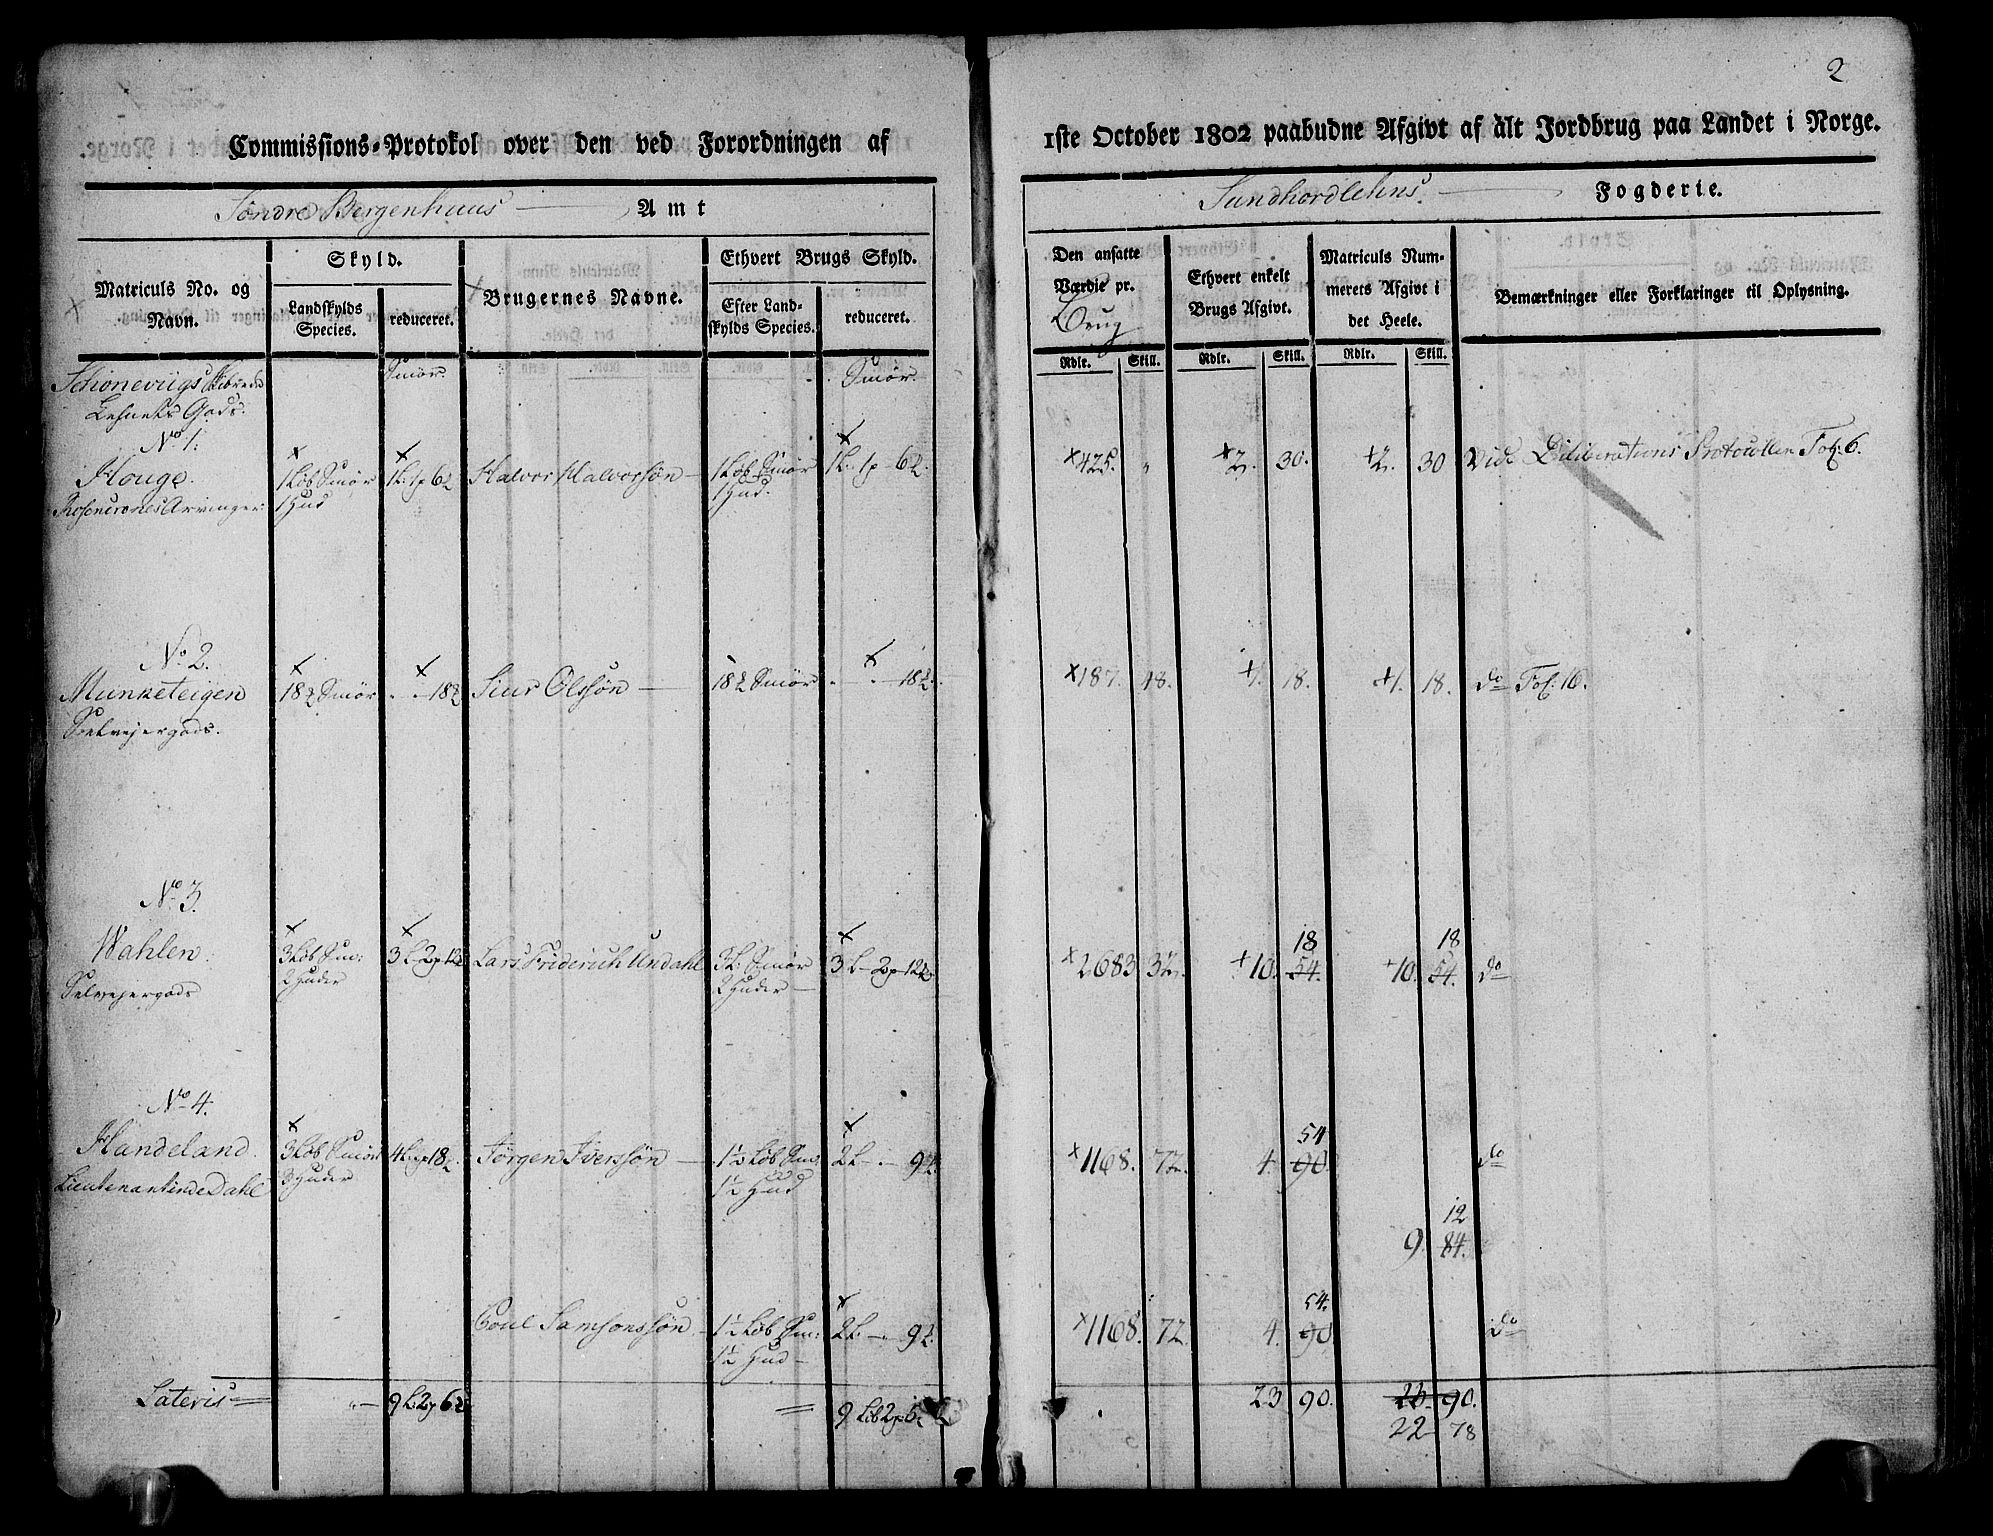 2
Commissions-Protokol over den ved Forordningen af
1ste October 1802 paabudne Afgivt af alt Jordbrug paa Landet i Norge.
Søndre Bergenhuus Amt
Sundhordlehns Fogderie.
Matriculs No. og Navn.
Skyld.
Landskylds Species.
reduceret.
Brugernes Navne.
Ethvert Brugs Skyld.
Efter Landskylds Species.
reduceret.
Den ansatte Værdie pr. Brug
Ethvert enkelt Brugs Afgivt.
Matriculs Nummerets Afgivt i det Heele.
Bemærkninger eller Forklaringer til Oplysning.
Rdlr. Skill. Rdlr. Skill. Rdlr. Skill.
Schonevigs Schibrede Smør. Smør.
Lehnets Gods.
No 1.
Houge. 1 Løb Smør 1 L. 1 p 6 Halvor Halvorssøn 1 Løb Smør 1 L. 1 p - 6 425. " 2. 30. 2. 30 Vide Deliberations Protocollen Fol: 6.
Rosencrones Arvinger: 1 Hud 1 Hud.
No 2.
Munketeigen 18 Smør 18 Siur Olssøn 18 Smør 18 187. 48. 1. 18. 1. 18. do Fol: 16.
Selvejergods.
No 3.
18 18
Wahlen. 3 Løb Sm: 3 L 2 p 12 Lars Friderich Undahl 3 L: Smør 3 L - 2 p - 12 2683 32. 10. 54. 10. 54. do
Selvejergods 2 Huder 2 Huder
No 4.
54
Handeland. 3 Løb Smør 4 L. 18 Jørgen Iverssøn 1½ Løb Sm: 2 L - 9 1168. 72. 4. 90. do
Lieutenantinde Dahl 3 Huder 1½ Hud
12
9. 84.
54.
Poul Samsonssøn 1½ Løb Sm: 2 L. - 9 1168. 72 4. 90 do
1½ Hud
Lateris " 9 L. 2 p 6 9 Løb 2 p 5 23 90. 23. 90.
22 - 78